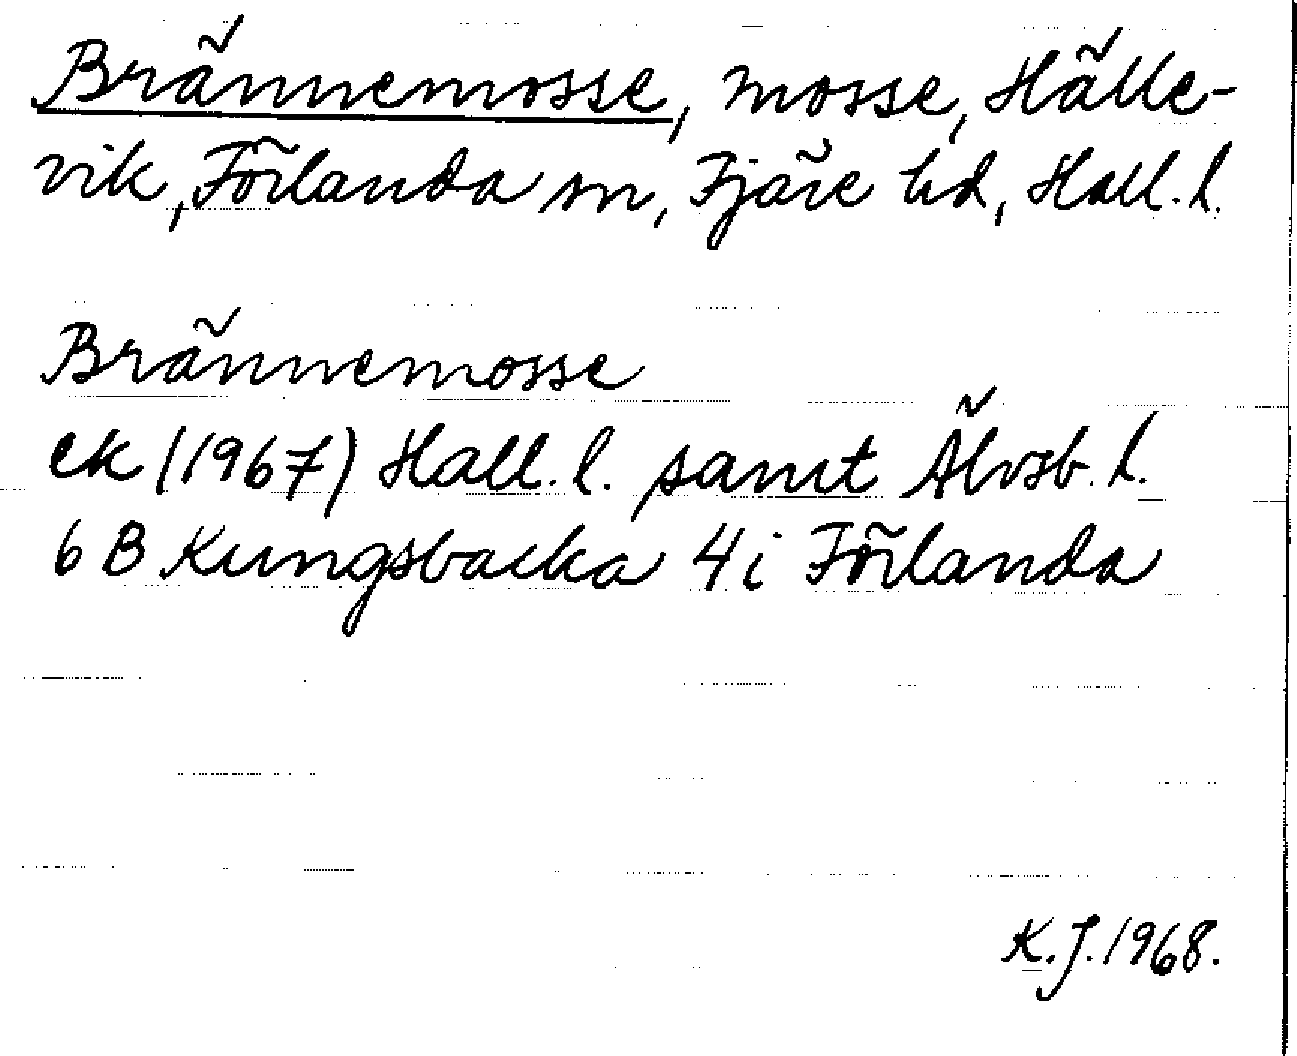 Brännemosse, mosse, Hälle-
vik, Förlanda sn, Fjäre hd, Hall. l.
Brännemosse
ek (1967) Hall. l. samt Älvsb. l.
6 B Kungsbacka 4 i Förlanda
K. J. 1968.